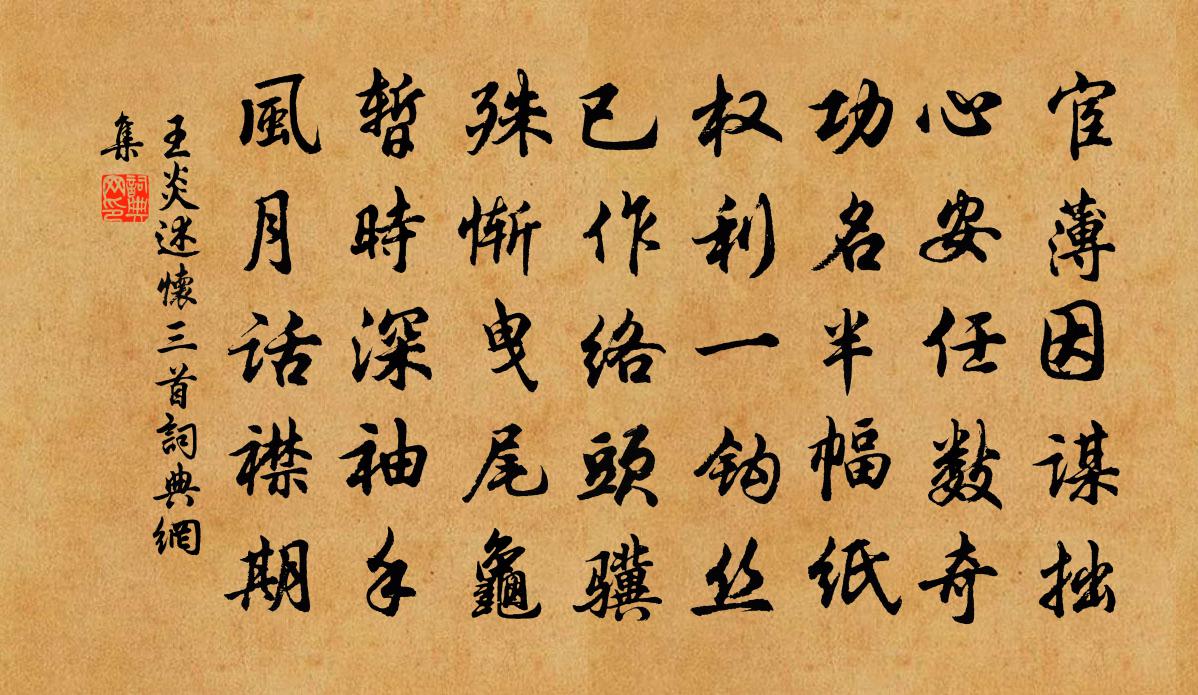 宦薄因谋拙
心安任数奇
功名半幅纸
权利一钩丝
已作络頭骥
殊惭曳尾龜
暂時深袖手
風月话襟期
王炎述懷三首詞典網
集
詞典
网印